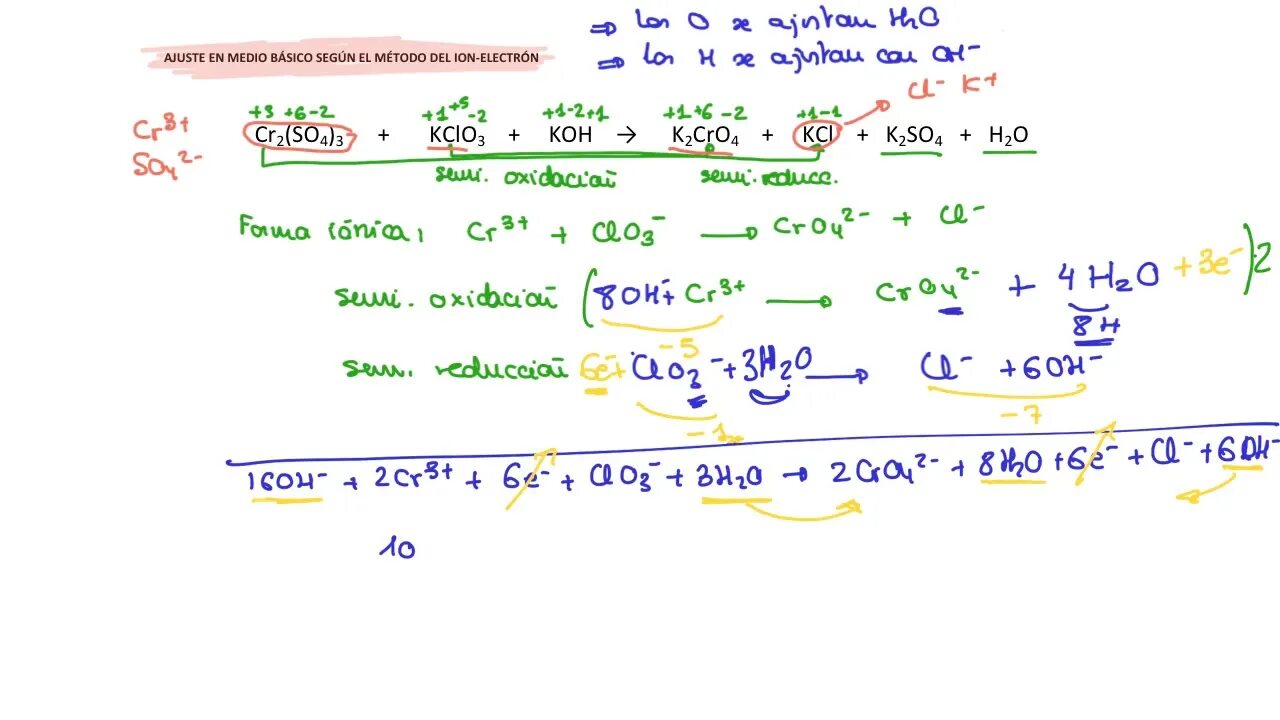 ⇒ los O se ajustan H₂O
AJUSTE EN MEDIO BÁSICO SEGÚN EL MÉTODO DEL ION-ELECTRÓN
⇒ los H se ajustan con OH⁻
Cl⁻ K⁺
Cr³⁺
+3 +6-2 +1+5-2 +1-2+1 +1+6-2 +1-1
Cr₂(SO₄)₃ + KClO₃ + KOH → K₂CrO₄ + KCl + K₂SO₄ + H₂O
SO₄²⁻
semi. oxidación semi. reducc.
Forma iónica: Cr³⁺ + ClO₃⁻ → CrO₄²⁻ + Cl⁻
semi. oxidación (8OH⁻+ Cr³⁺ → CrO₄²⁻ + 4H₂O +3e⁻)·2
8H
-5
semi. reducción 6e⁻+ ClO₃⁻ +3H₂O → Cl⁻ +6OH⁻
-1 -7
16OH⁻ + 2Cr³⁺ + 6e⁻ + ClO₃⁻ + 3H₂O → 2CrO₄²⁻ + 8H₂O + 6e⁻ + Cl⁻ + 6OH⁻
10